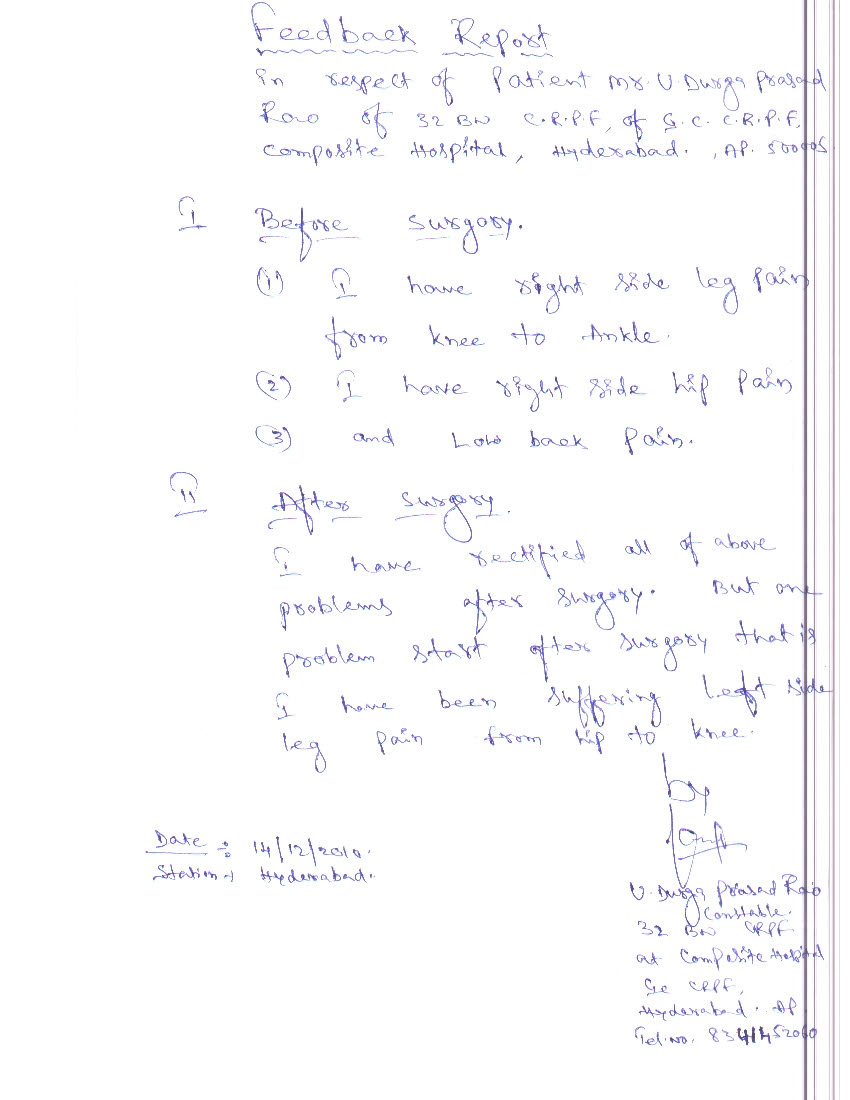 Feedback Report
in respect of Patient Mr. U. Durga Prasad
Rao of 32 BN C.R.P.F, of G.C. C.R.P.F,
Composite Hospital, Hyderabad. , AP. 500005
I Before surgory.
(1) I have right side leg pain
from knee to Ankle.
(2) I have right side hip pain
(3) and Low back pain.
II After surgory.
I have rectified all of above
problems after surgory. But one
problem start after surgory that is
I have been suffering left side
leg pain from hip to knee.
by
Date :- 14/12/2010.
Station :- Hyderabad.
U. Durga Prasad Rao
Constable.
32 BN CRPF
at Composite Hospital
Gc CRPF,
Hyderabad. AP
Tel. no. 8341452060